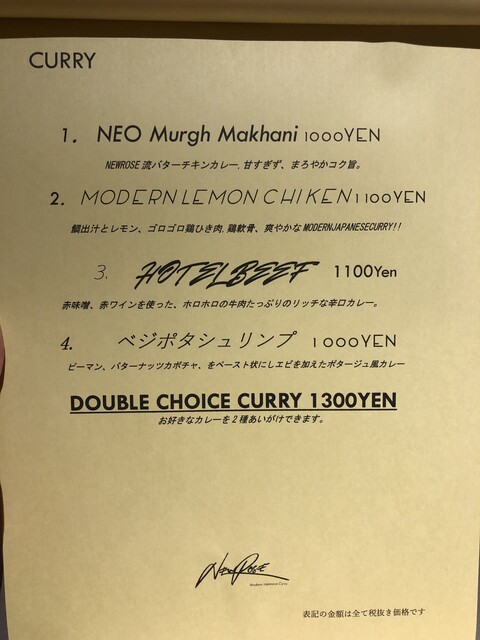 CURRY
1. NEO Murgh Makhani 1000YEN
NEWROSE流バターチキンカレー,甘すぎず、まろやかコク旨。
2. MODERN LEMON CHIKEN 1100YEN
鯛出汁とレモン、ゴロゴロ鶏ひき肉,鶏軟骨、爽やかなMODERNJAPANESECURRY!!
3. HOTELBEEF 1100Yen
赤味噌、赤ワインを使った、ホロホロの牛肉たっぷりのリッチな辛口カレー。
4. ベジポタシュリンプ 1000YEN
ピーマン、バターナッツカボチャ、をペースト状にしエビを加えたポタージュ風カレー
DOUBLE CHOICE CURRY 1300YEN
お好きなカレーを2種あいがけできます。
NEW ROSE
Modern Japanese Curry
表記の金額は全て税抜き価格です